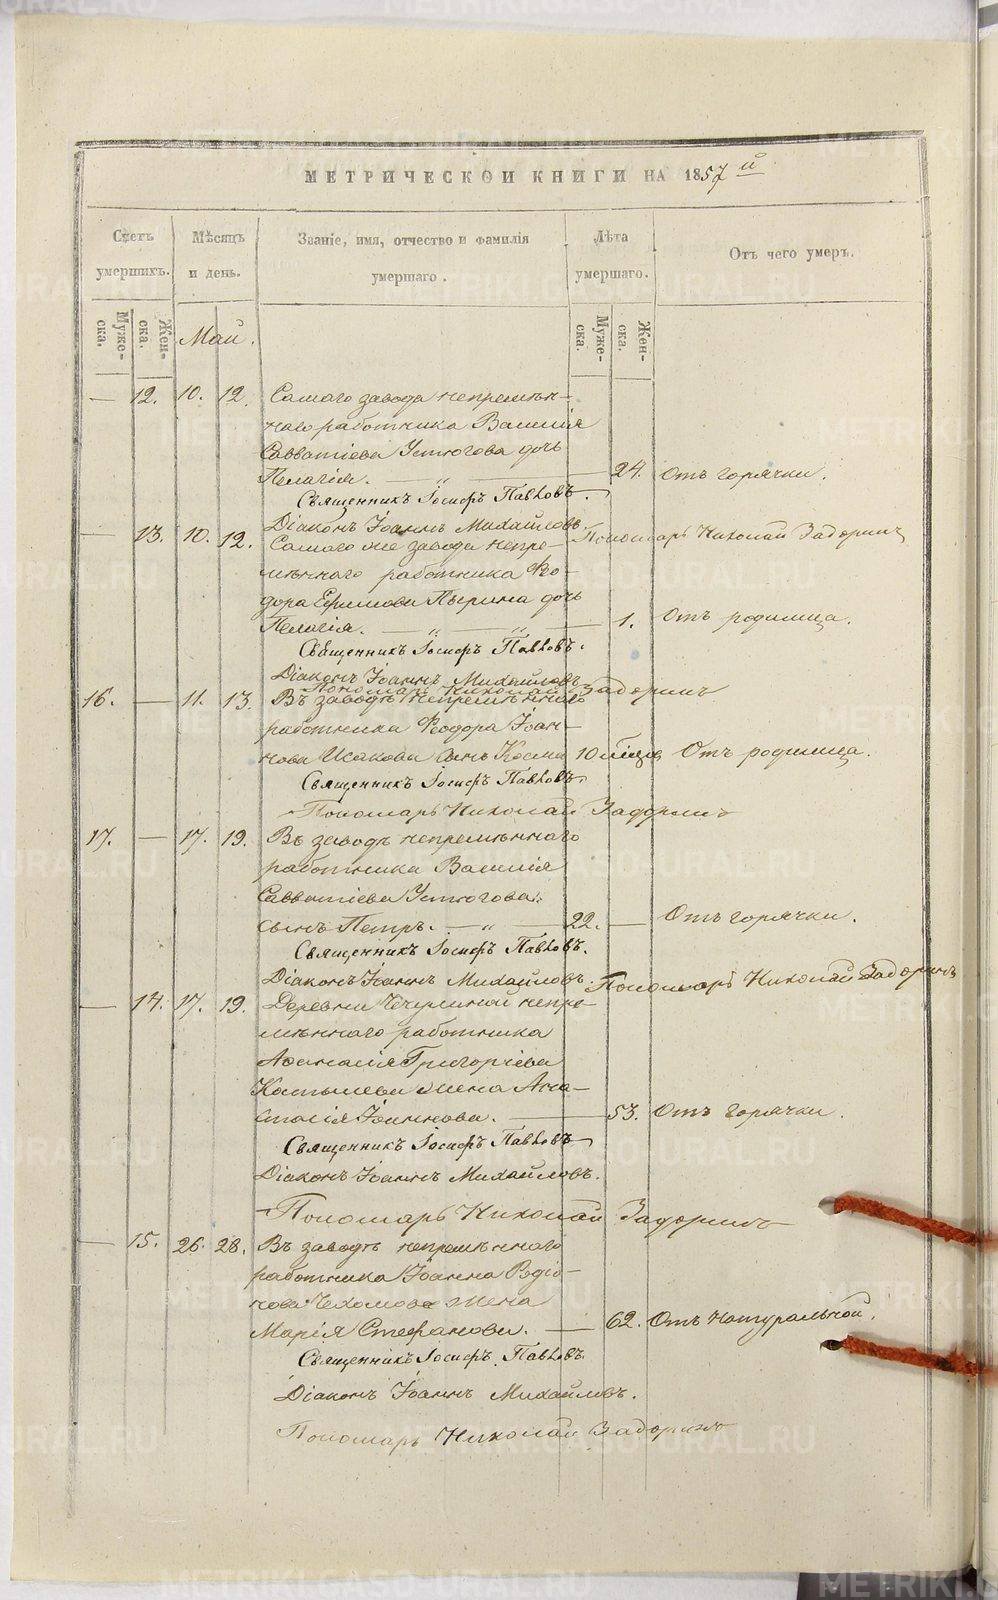 МЕТРИЧЕСКОЙ КНИГИ НА 1857й
Счетъ умершихъ.
Мѣсяцъ и день.
Званіе, имя, отчество и фамилія умершаго.
Лѣта умершаго.
Отъ чего умеръ.
Муже-ска.
Жен-ска.
Май.
Муже-ска.
Жен-ска.
— 12. 10. 12. Самаго завода непремѣн-
наго работника Василія
Савватіева Устюгова дочь
Пелагія. — „ — 24. Отъ горячки.
Священникъ Іосифъ Павловъ.
Діаконъ Іоаннъ Михайловъ. Пономарь Николай Задоринъ
— 13. 10. 12. Самаго же завода непре-
мѣннаго работника Фео-
дора Ефимова Пырина дочь
Пелагія. — „ — „ — 1. Отъ родимца.
Священникъ Іосифъ Павловъ.
Діаконъ Іоаннъ Михайловъ
Пономарь Николай Задоринъ
16. — 11. 13. Въ заводѣ непремѣннаго
работника Ѳеодора Іоан-
нова Исакова сынъ Косма 10 мѣсяц. Отъ родимца.
Священникъ Іосифъ Павловъ
Пономарь Николай Задоринъ
17. — 17. 19. Въ заводѣ непремѣннаго
работника Василія
Савватіева Устюгова
сынъ Петръ. — „ — 22. — Отъ горячки.
Священникъ Іосифъ Павловъ.
Діаконъ Іоаннъ Михайловъ. Пономарь Николай Задоринъ
— 14. 17. 19. Деревни непре-
мѣннаго работника
Аѳанасія Григорьева
жена Ана-
стасія Іоаннова. — 53. Отъ горячки.
Священникъ Іосифъ Павловъ
Діаконъ Іоаннъ Михайловъ.
Пономарь Николай Задоринъ
— 15. 26. 28. Въ заводѣ непремѣннаго
работника Іоанна Родіо-
нова Чехомова жена
Марія Стефанова. — 62. Отъ натуральной.
Священникъ Іосифъ Павловъ.
Діаконъ Іоаннъ Михайловъ.
Пономарь Николай Задоринъ
METRIKI.GASO-URAL.RU